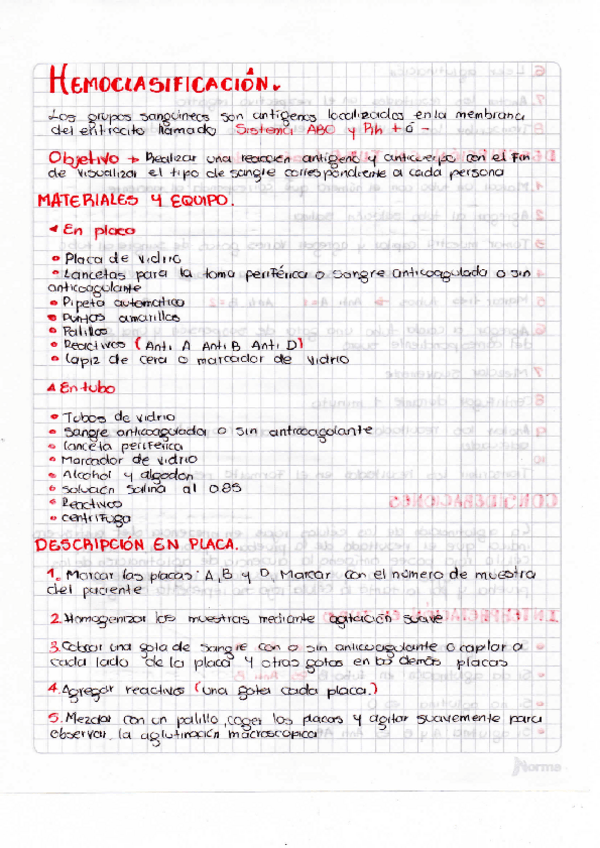 HEMOCLASIFICACIÓN.
Los grupos sanguineos son antígenos localizados en la membrana
del eritrocito llamado Sistema ABO y Rh + ó -
Objetivo → Realizar una reacción antígeno y anticuerpo con el fin
de visualizar el tipo de sangre correspondiente a cada persona
MATERIALES Y EQUIPO.
En placa
• Placa de vidrio
• Lancetas para la toma periférica o sangre anticoagulada o sin
anticoagulante
• Pipeta automatica
• Puntas amarillas
• Palillos
• Reactivos (Anti A Anti B Anti D)
• Lapiz de cera o marcador de vidrio
En tubo
• Tubos de vidrio
• Sangre anticoagulada o sin anticoagulante
• lanceta periferica
• Marcador de vidrio
• Alcohol y algodon
• Solución Salina al 0.85
• Reactivos
• centrifuga
DESCRIPCIÓN EN PLACA.
1. Marcar las placas: A, B y D, Marcar con el número de muestra
del paciente
2. Homogenizar las muestras mediante agitación suave
3. Colocar una gota de sangre con o sin anticoagulante o capilar a
cada lado de la placa y otras gotas en las demás placas
4. Agregar reactivos (una gota cada placa.)
5. Mezclar con un palillo, coger las placas y agitar suavemente para
observar la aglutinación macroscopica
Norma